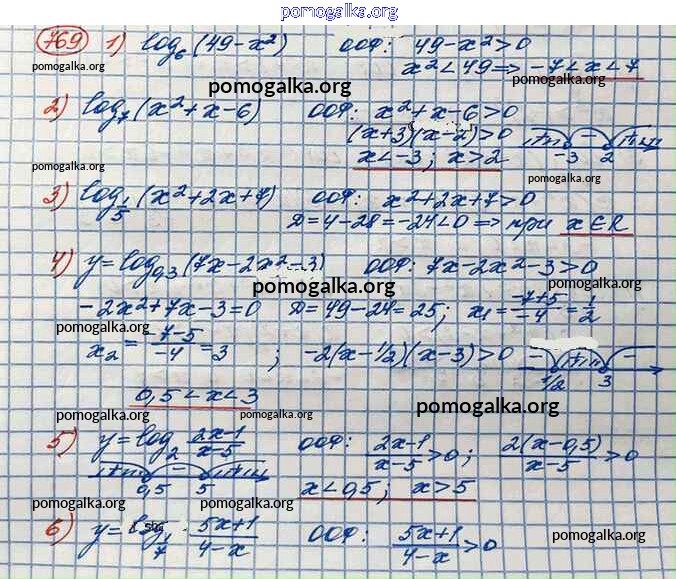 pomogalka.org
769 1) log₆(49-x²) ООФ: 49-x²>0
pomogalka.org x²<49 => -7<x<7
pomogalka.org pomogalka.org
2) log₇(x²+x-6) ООФ: x²+x-6>0
pomogalka.org (x+3)(x-2)>0 + - +
x<-3; x>2 -3 2
pomogalka.org pomogalka.org
3) log_{1/5}(x²+2x+7) ООФ: x²+2x+7>0
pomogalka.org Д=4-28=-24<0 => при x∈R
4) y=log_{0,3}(7x-2x²-3) ООФ: 7x-2x²-3>0
pomogalka.org pomogalka.org
-2x²+7x-3=0 Д=49-24=25; x₁=(-7+5)/-4=1/2
pomogalka.org pomogalka.org
x₂=(-7-5)/-4=3; -2(x-1/2)(x-3)>0 - + -
1/2 3
0,5<x<3 pomogalka.org
pomogalka.org pomogalka.org
5) y=log₂ (2x-1)/(x-5) ООФ: (2x-1)/(x-5)>0; 2(x-0,5)/(x-5)>0
+ - +
0,5 5 x<0,5; x>5
pomogalka.org pomogalka.org pomogalka.org
6) y=log_{1/7} (5x+1)/(4-x) ООФ: (5x+1)/(4-x)>0
pomogalka.org
pomogalka.org